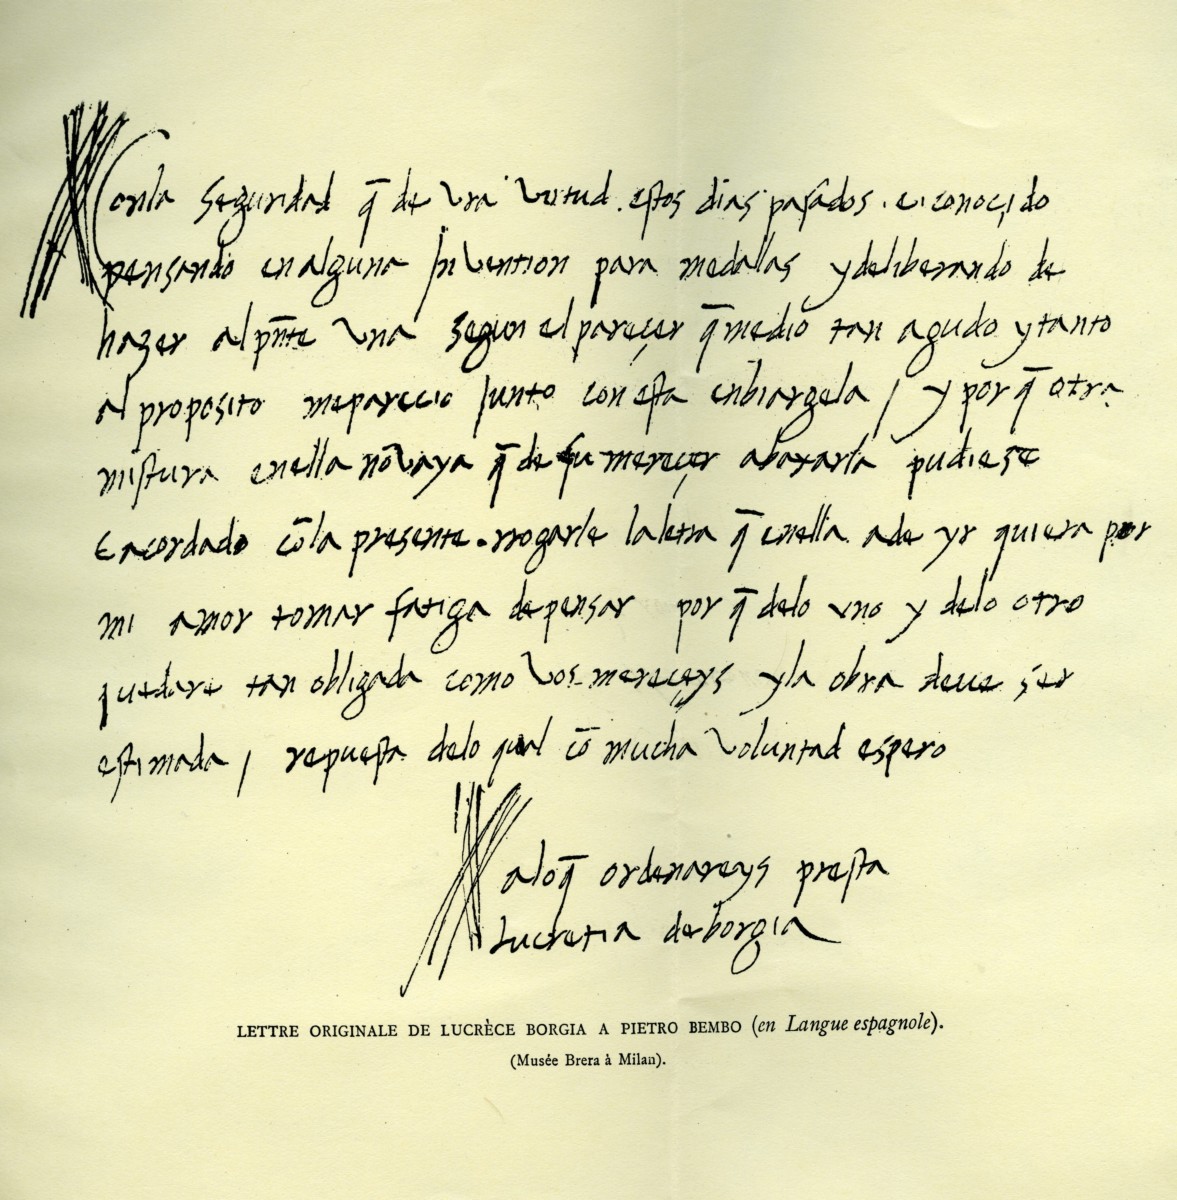 Conla seguridad q̄ de vr̄a virtud. estos dias pasados. e conoçido
pensando en alguna Invention para medallas y deliberando de
hazer al pn̄te vna segun el pareçer q̄ me dio tan agudo y tanto
al proposito me pareçio Junto con esta enbiargela / y por q̄ otra
mistura en ella nō vaya q̄ de su mereçer abaxarla pudiese
E acordado cō la presente. rrogarle la letra q̄ en ella. a de yr quiera por
mi amor tomar fatiga de pensar por q̄ de lo vno y de lo otro
quedare tan obligada como vos mereçeys y la obra deue ser
estimada / repuesta de lo qual cō mucha voluntad espero
a lo q̄ ordenareys presta
Lucretia de borgia
LETTRE ORIGINALE DE LUCRÈCE BORGIA A PIETRO BEMBO (en Langue espagnole).
(Musée Brera à Milan).